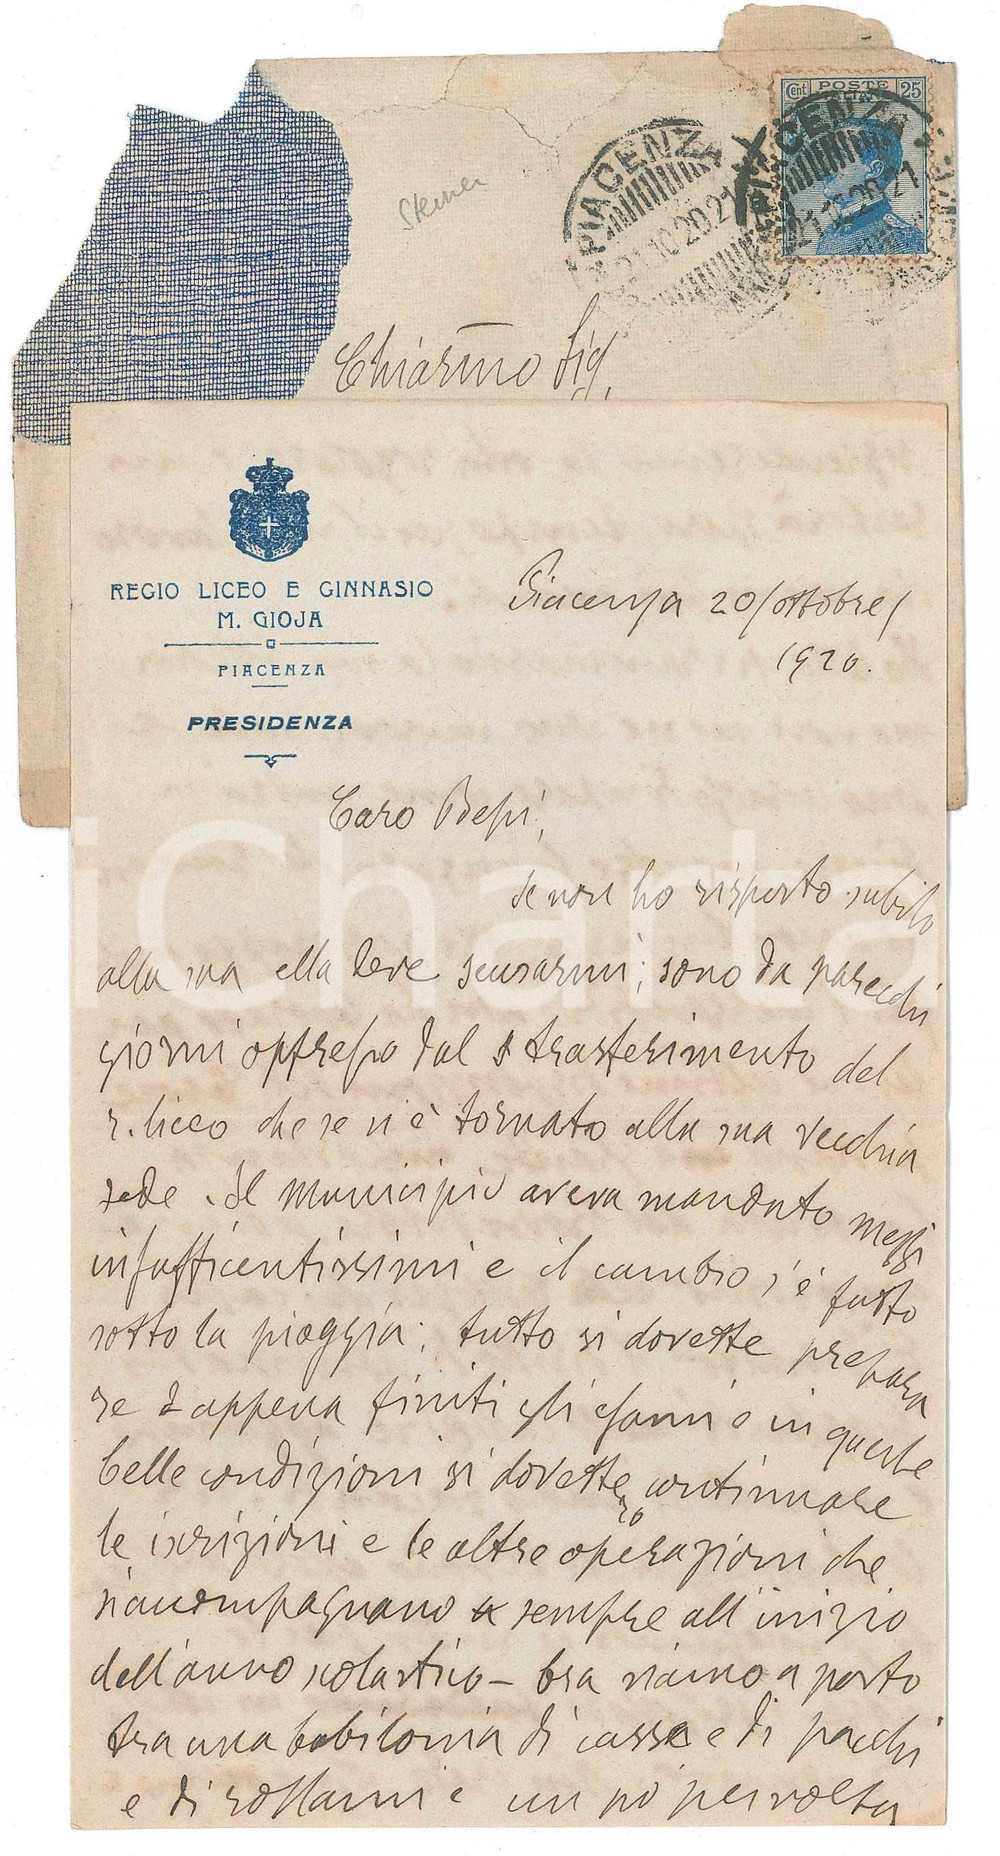 Cent POSTE ITALIANE 25
PIACENZA
21.10.20.21
PIACENZA
21.10.20.21
Steiner
Chiarmo Sig.
REGIO LICEO E GINNASIO
M. GIOJA
PIACENZA
PRESIDENZA
Piacenza 20/ottobre/
1920.
Caro Bepi,
se non ho risposto subito
alla sua ella deve scusarmi; sono da parecchi
giorni oppresso dal trasferimento del
r. liceo che se n'è tornato alla sua vecchia
sede. Il municipio aveva mandato mezzi
insufficientissimi e il cambio s'è fatto
sotto la pioggia; tutto si dovette prepara
re appena finiti gli esami e in queste
belle condizioni si dovettero continuare
le iscrizioni e le altre operazioni che
s'accompagnano sempre all'inizio
dell'anno scolastico – Ora siamo a posto
tra una babilonia di casse e di pacchi
e di rottami e un po' per volta
iCharta